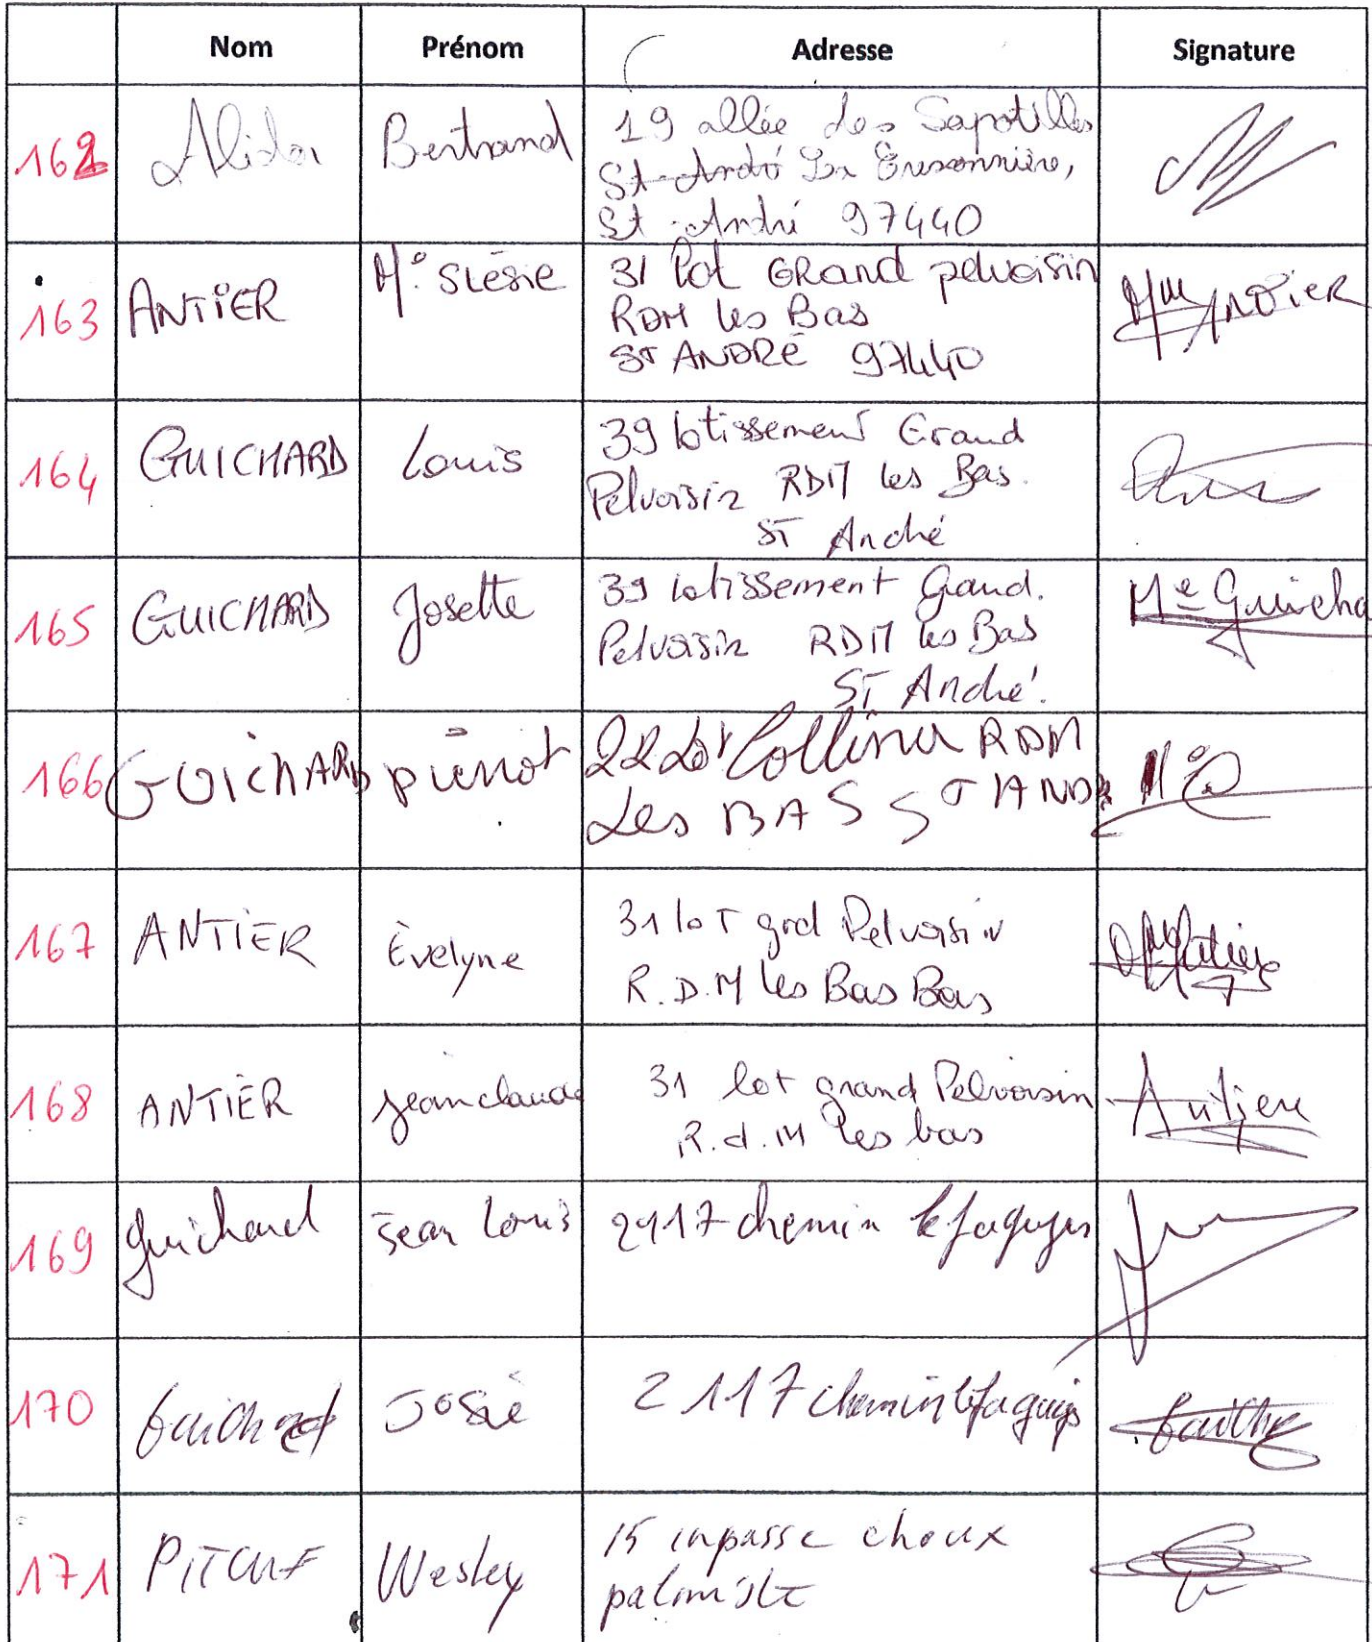 Nom Prénom Adresse Signature
162 Alidor Bertrand 19 allée des Sapotilles
St-André La Cressonnière,
St-André 97440
163 ANTIER M. SLESIE 31 lot GRand pelvoisin Mme ANTIER
RDM les Bas
ST ANDRÉ 97440
164 GUICHARD Louis 39 lotissement Grand
Pelvoisin RDM les Bas.
ST André
165 GUICHARD Josette 39 lotissement Grand. Me Guicha
Pelvoisin RDM les Bas
ST André.
166 GUICHARD pierrot 22 Lot Colline RDM
Les BAS ST AND
167 ANTIER Évelyne 31 lot grd Pelvoisin
R.D.M les Bas Bas
168 ANTIER jean claude 31 lot grand Pelvoisin Antier
R.d.M les bas
169 guichard Jean Louis 2117 chemin lefaguyes
170 Guichard José 2117 chemin lefaguyes
171 PITOUF Wesley 15 inpasse choux
palmiste